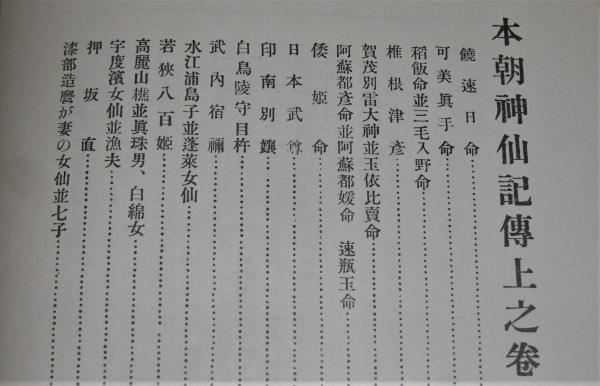 本朝神仙記傳上之卷
饒速日命
可美眞手命
稻飯命並三毛入野命
椎根津彥
賀茂別雷大神並玉依比賣命
阿蘇都彥命並阿蘇都媛命 速瓶玉命
倭姬命
日本武尊
印南別孃
白鳥陵守目杵
武內宿禰
水江浦島子並蓬萊女仙
若狹八百姬
高麗山樵並眞珠男、白綿女
宇度濱女仙並漁夫
押坂直
漆部造麿が妻の女仙並七子